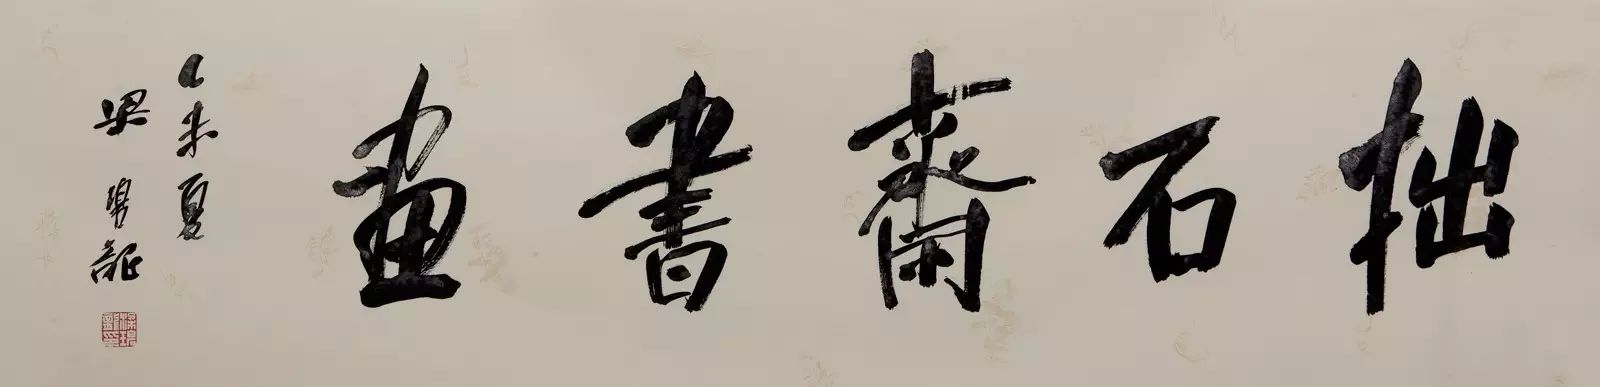 拙石齋書畫
乙未夏
梁